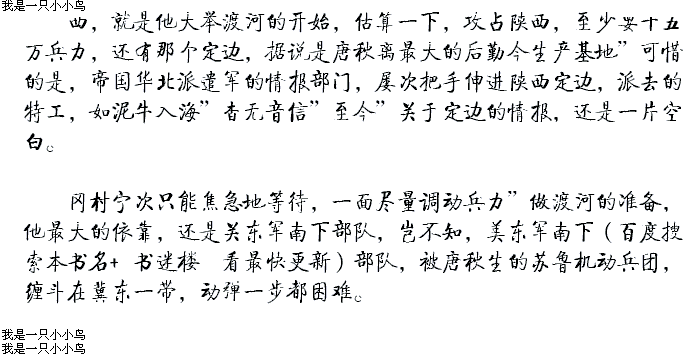 我是一只小小鸟
西，就是他大举渡河的开始，估算一下，攻占陕西，至少要十五
万兵力，还有那个定边，据说是唐秋离最大的后勤今生产基地”可惜
的是，帝国华北派遣军的情报部门，屡次把手伸进陕西定边，派去的
特工，如泥牛入海”杳无音信”至今”关于定边的情报，还是一片空
白。
冈村宁次只能焦急地等待，一面尽量调动兵力”做渡河的准备，
他最大的依靠，还是关东军南下部队，岂不知，美东军南下（百度搜
索本书名+ 书迷楼 看最快更新）部队，被唐秋生的苏鲁机动兵团，
缠斗在冀东一带，动弹一步都困难。
我是一只小小鸟
我是一只小小鸟